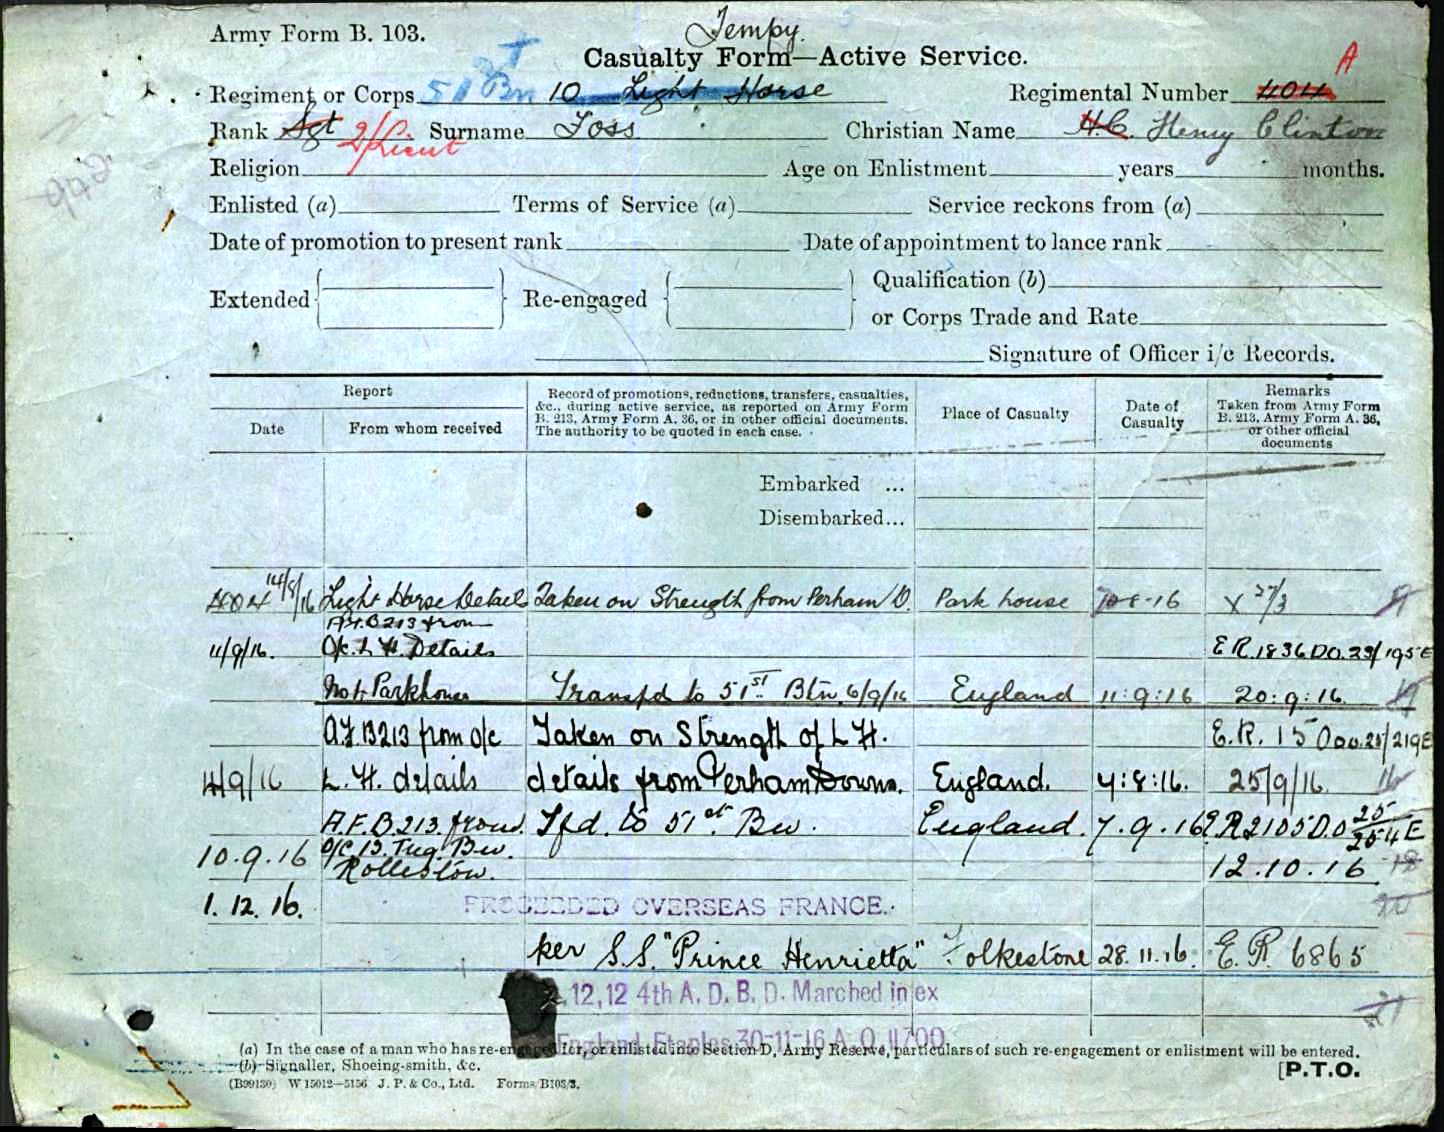 Tempy.
Army Form B. 103.
Casualty Form—Active Service.
A
Regiment or Corps 51 Bn 10 Light Horse Regimental Number 404
Rank Sgt 2/Lieut Surname Foss Christian Name H.C. Henry Clinton
Religion Age on Enlistment years months.
942
Enlisted (a) Terms of Service (a) Service reckons from (a)
Date of promotion to present rank Date of appointment to lance rank
Extended Re-engaged Qualification (b)
or Corps Trade and Rate
Signature of Officer i/c Records.
Report
Date From whom received
Record of promotions, reductions, transfers, casualties,
&c., during active service, as reported on Army Form
B. 213, Army Form A. 36, or in other official documents.
The authority to be quoted in each case.
Place of Casualty
Date of
Casualty
Remarks
Taken from Army Form
B. 213, Army Form A. 36,
or other official
documents
Embarked ...
Disembarked...
404 14/8/16 Light Horse Details Taken on Strength from Perham D. Park house 8-16 X 27/3
A.F. B213 from
11/9/16. O/c. L. H. Details E R. 1836 D.O. 23/195 E
No 4 Parkhouse Transfd to 51st Btn 6/9/16 England 11:9:16 20:9:16.
A.F. B213 from o/c Taken on Strength of L H. E.R. 15
4/9/16 L. H. details details from Perham Downs. England. 4:8:16. 25/9/16.
A.F. B 213. from Tfd. to 51st Bn. England. 7.9.16 E.R 2105 D.O 25/254 E
10.9.16 O/C 13. Trg. Bn.
Rollestow. 12.10.16
1.12.16. PROCEEDED OVERSEAS FRANCE.
per S.S. "Prince Henrietta" Folkestone 28.11.16. E.R. 6865
12,12 4th A. D. B. D. Marched in ex
England Etaples 30-11-16 A.O. 11700
(a) In the case of a man who has re-engaged for, or enlisted into Section D, Army Reserve, particulars of such re-engagement or enlistment will be entered.
(b) Signaller, Shoeing-smith, &c.
(B99130) W 15012—5156 J. P. & Co., Ltd. Forms/B103/3.
[P.T.O.